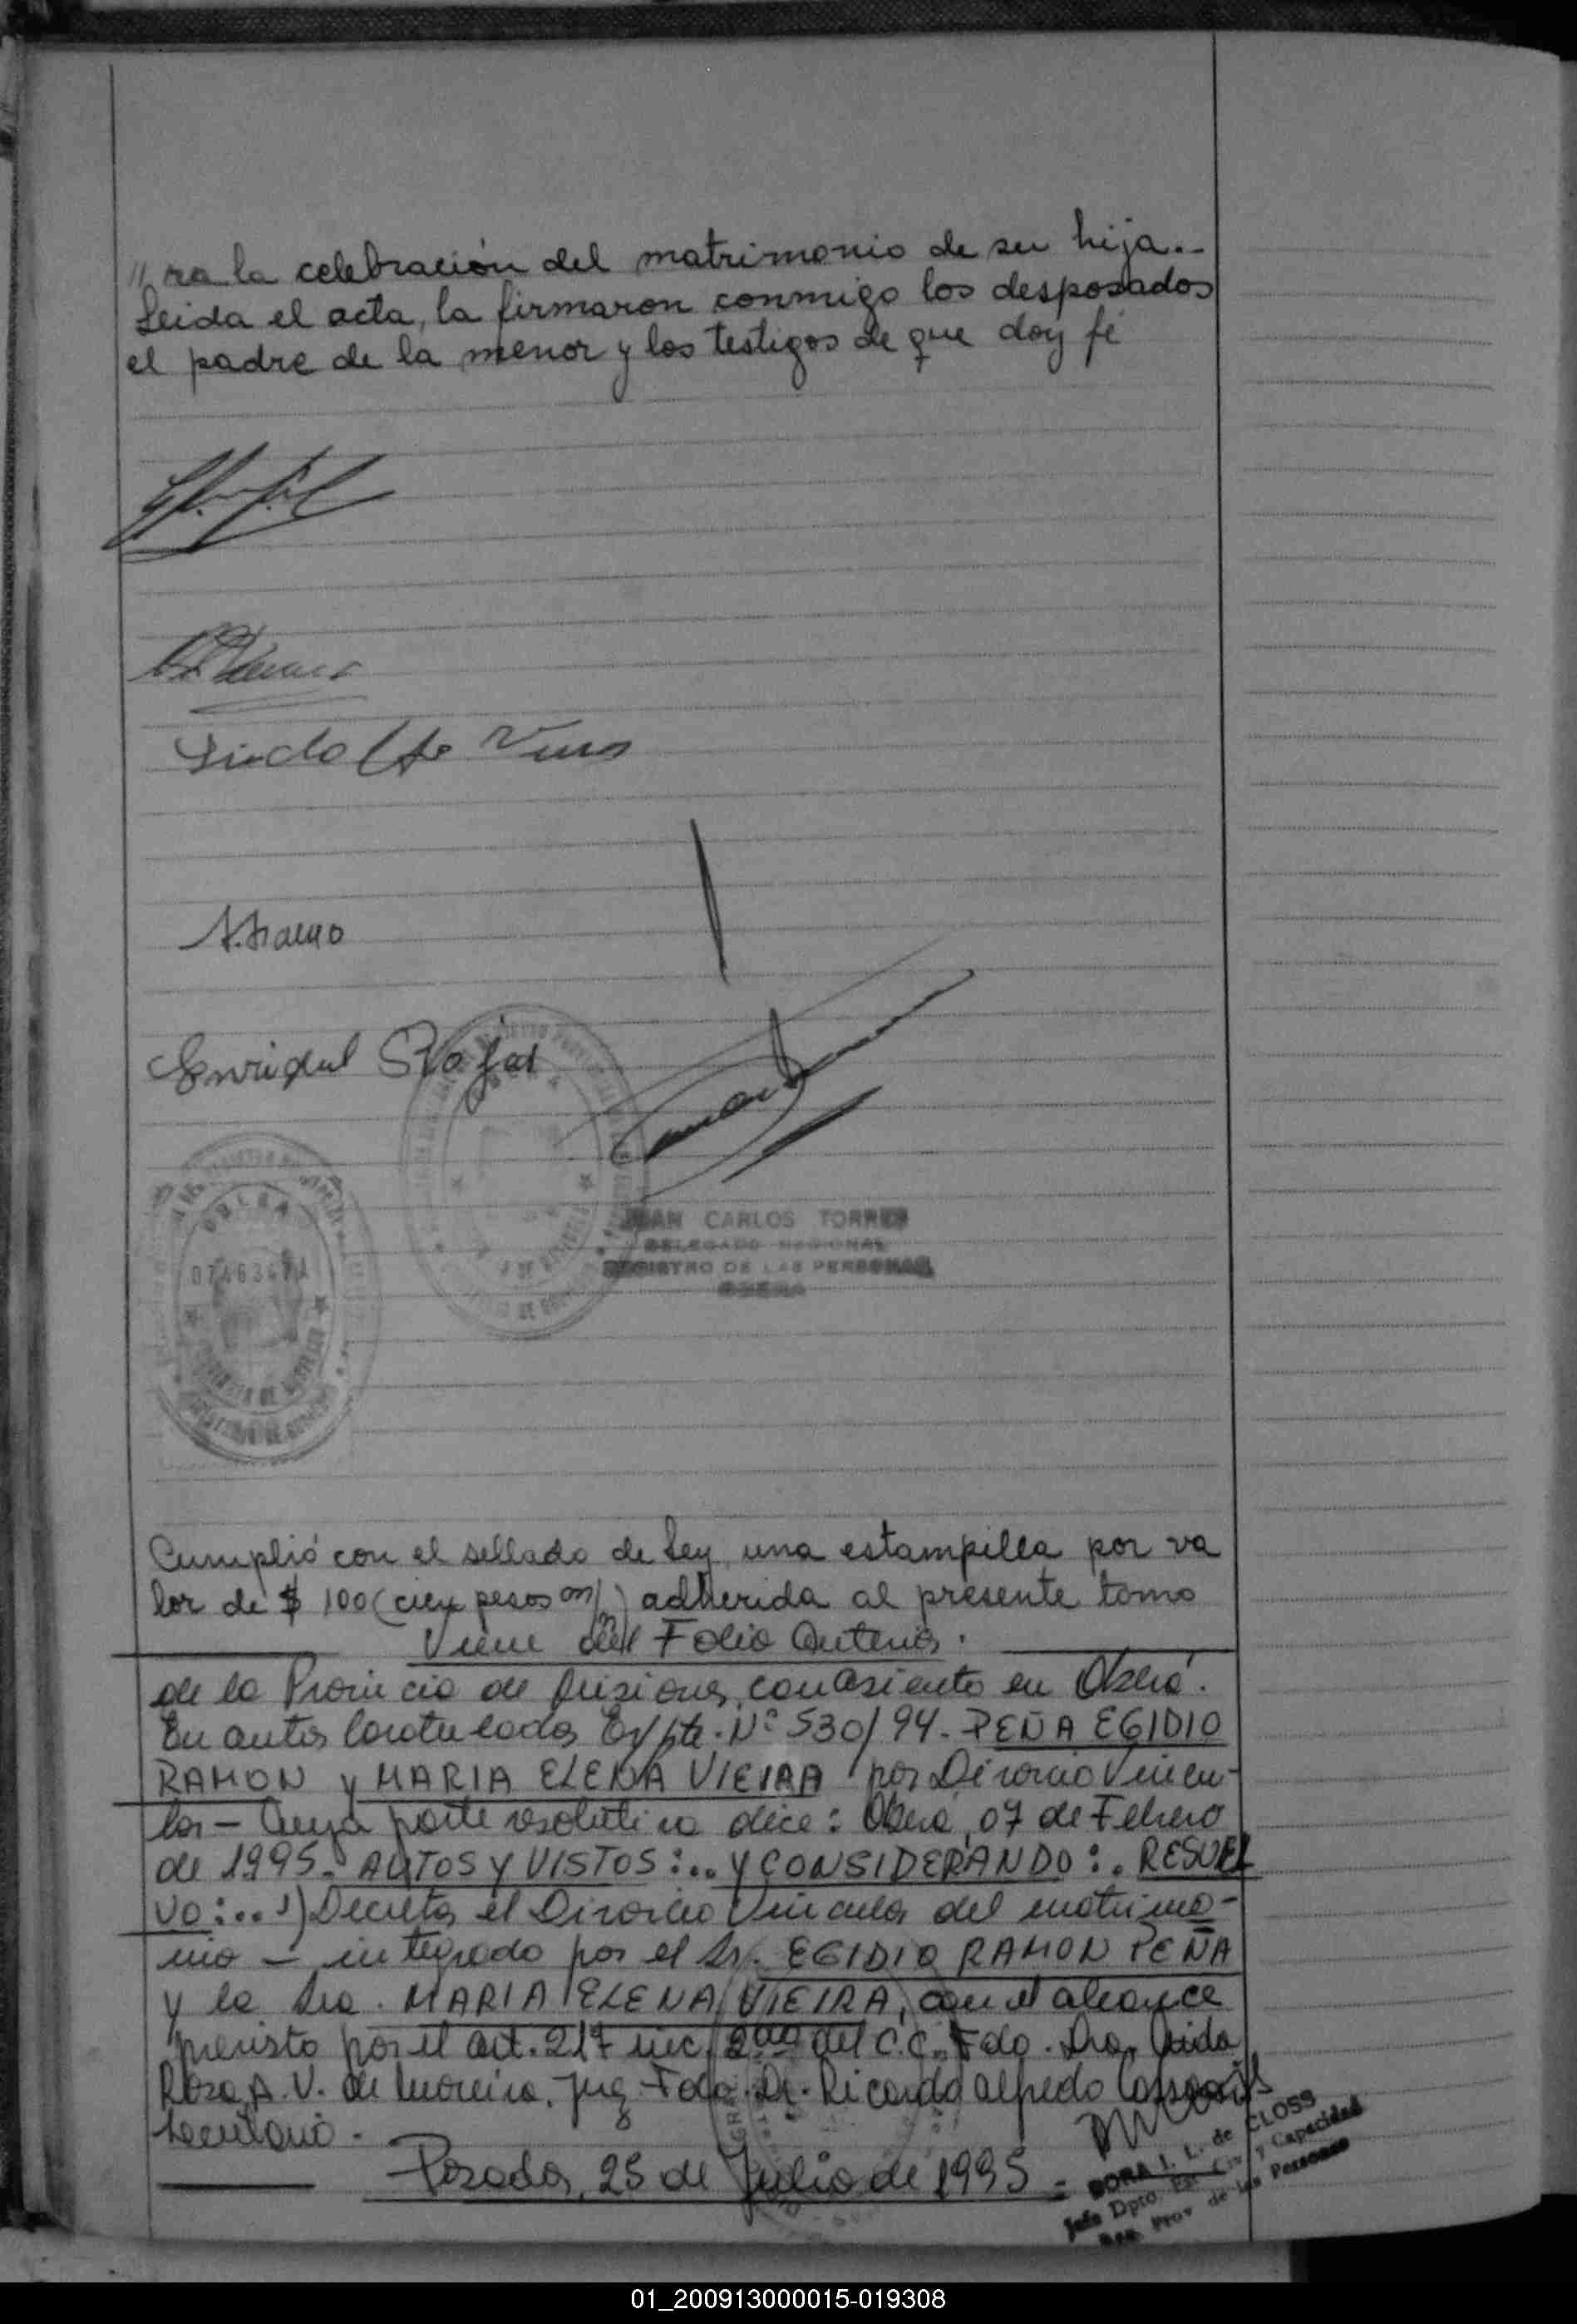 // ra la celebración del matrimonio de su hija.-
Leida el acta, la firmaron conmigo los desposados
el padre de la menor y los testigos de que doy fé
OBERA
JUAN CARLOS TORRES
DELEGADO REGIONAL
REGISTRO DE LAS PERSONAS
OBERA
Cumplió con el sellado de Ley, una estampilla por va
lor de $ 100 (cien pesos m/n) adherida al presente tomo
Viene del Folio Anterior.
de la Provincia de Misiones, con asiento en Oberá.
En autos Caratulados Expte. Nº 530/94 - PEÑA EGIDIO
RAMON y MARIA ELENA VIEIRA por Divorcio Vincu-
lar - Cuya parte resolutiva dice: Oberá, 07 de Febrero
de 1995 - AUTOS Y VISTOS:... Y CONSIDERANDO:. RESUEL
VO:... 1) Decretar el Divorcio Vincular del matrimo-
nio - integrado por el Sr. EGIDIO RAMON PEÑA
y la Sra. MARIA ELENA VIEIRA, con el alcance
previsto por el art. 217 inc. 2do del C.C. Fdo. Dra.
Rosa A. V. de Moreira. Juez - Fdo. Dr. Ricardo Alfredo
Secretario -
Posadas, 25 de Julio de 1995 -
DORA I. L. de CLOSS
Jefe Dpto. Est. Civ. y Capacidad
Reg. Prov. de las Personas
01_200913000015-019308